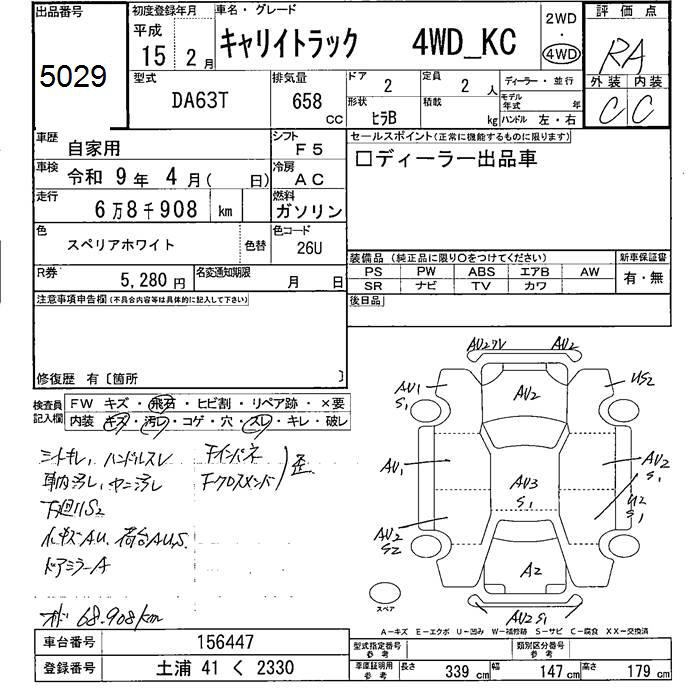 出品番号
5029
初度登録年月
平成
15年 2月
車名・グレード
キャリイトラック 4WD_KC
2WD
・
4WD
評価点
RA
外装 内装
C C
型式
DA63T
排気量
658
cc
ドア
2
定員
2 人
ディーラー・並行
形状
ヒラB
積載
kg
モデル年式 年
ハンドル 左・右
車歴
自家用
シフト
F5
車検
令和 9年 4月( 日)
冷房
AC
走行
6万8千908 km
燃料
ガソリン
色
スペリアホワイト
色替
色コード
26U
R券
5,280円
名変通知期限
月 日
セールスポイント(正常に機能するものに限ります)
□ディーラー出品車
装備品(純正品に限り○をつけてください)
新車保証書
PS PW ABS エアB AW
SR ナビ TV カワ
有・無
後日品
注意事項申告欄(不具合内容等は具体的に記入して下さい)
修復歴 有〔箇所 〕
検査員記入欄
FW キズ・飛石・ヒビ割・リペア跡・×要
内装 キズ・汚レ・コゲ・穴・スレ・キレ・破レ
シートキレ、ハンドルスレ
車内汚レ、ヤニ汚レ
下廻りS2
小キズAU、荷台AUS
ドアミラーA
Fインパネ
Fクロスメンバ
歪
オド 68,908km
AU2 AU2
AU1
S1
AU2
US2
AU1
AU3
S1
AU2
S1
U2
S1
AU2
S2
A2
AU2 S1
スペア
A−キズ E−エクボ U−凹み W−補修跡 S−サビ C−腐食 XX−交換済
車台番号
156447
登録番号
土浦 41 く 2330
型式指定番号
参考
類別区分番号
参考
車庫証明用
参考
長さ 339 cm 幅 147 cm 高さ 179 cm